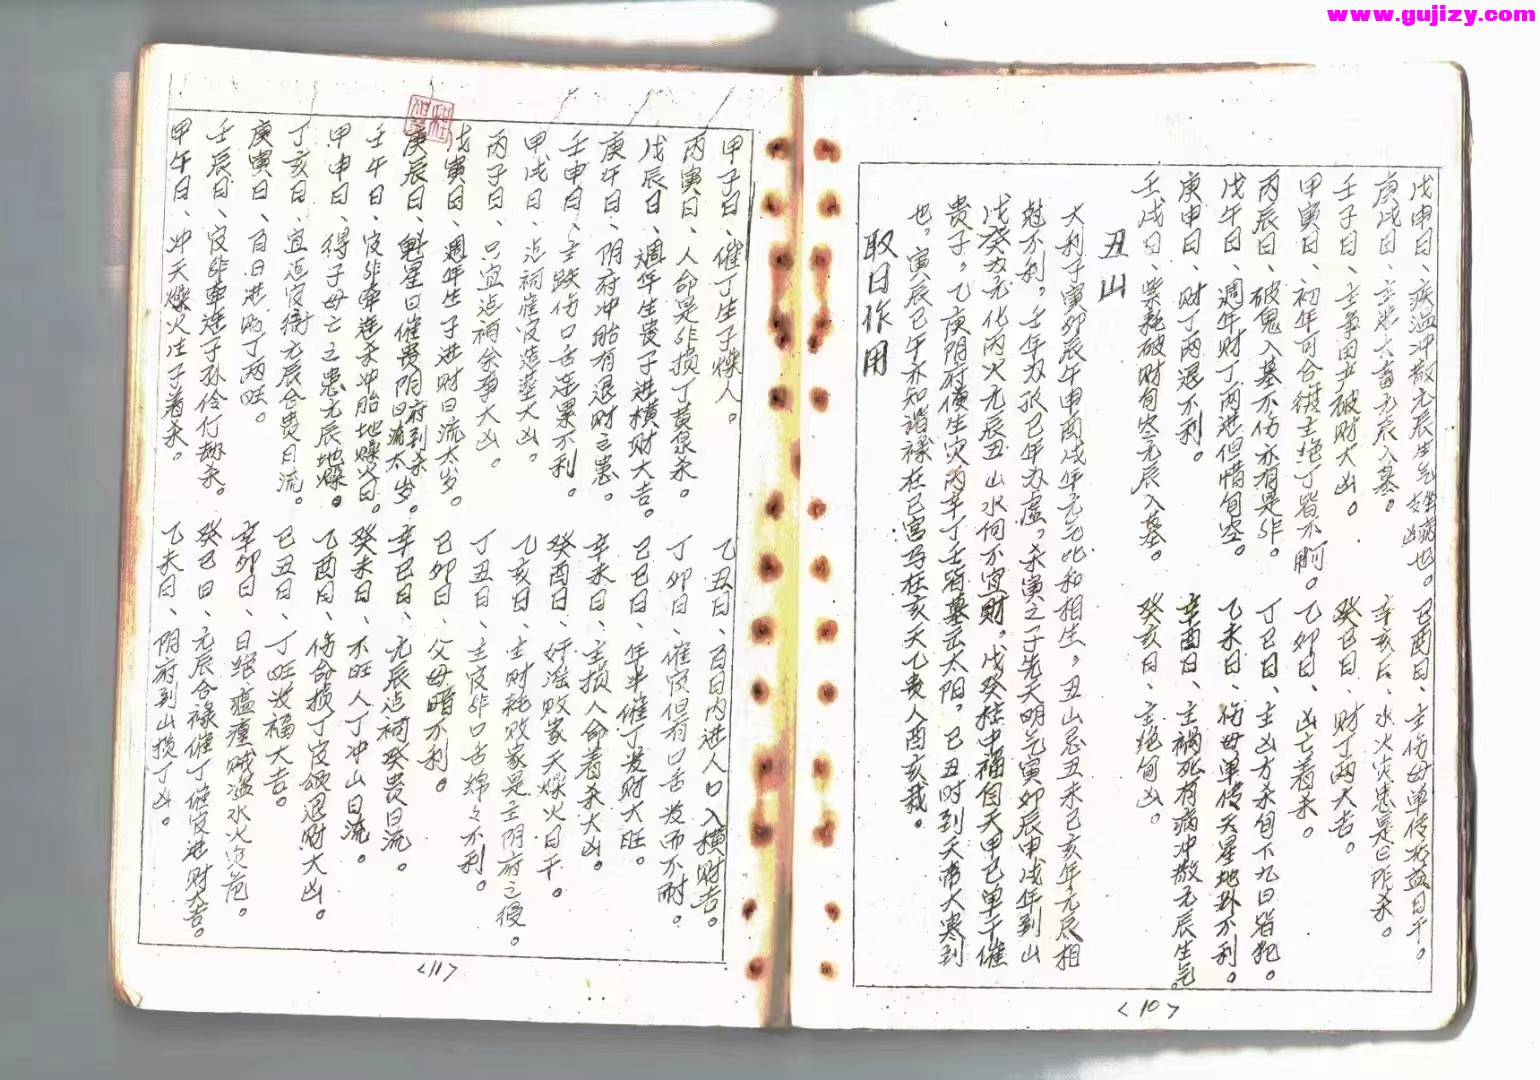 www.gujizy.com
戊申日、疾温冲散元辰生气姓病凶也。己酉日、主伤母单传若益日干。
庚戌日、主患六畜元辰入墓。辛亥日、水火灾患是日所杀。
壬子日、主争田产破财大凶。癸丑日、财丁两大吉。
甲寅日、初年可合后主绝丁皆不耐。乙卯日、凶亡着杀。
丙辰日、破鬼入墓不伤亦有是非。丁巳日、主凶方杀旬下九日皆犯。
戊午日、週年财丁两进但惜旬空。乙未日、伤母单传天星地卦不利。
庚申日、财丁两退不利。辛酉日、主祸死有病冲散元辰生气。
壬戌日、柴耗破财旬空元辰入墓。癸亥日、主绝旬凶。
丑山
大利子寅卯辰午申酉戌年元元比和相生，丑山忌丑未己亥年元辰相
尅不利，壬年为孤己年为虚，杀寅之子先天明气寅卯辰申戌年到山
戊癸为元化丙火元辰丑山水何不宜财，戊癸禄中福自天甲己单干催
贵子，乙庚阴府便生灾丙辛丁壬皆墓正太阳，己丑时到天帝大寒到
也，寅辰巳午亦知谐禄在巳宫马在亥天乙贵人酉亥裁。
取日作用
<10>
甲子日、催丁生子燥人。乙丑日、百日内进人口入横财吉。
丙寅日、人命是非损丁黄泉杀。丁卯日、催官但有口舌发而不耐。
戊辰日、週年生贵子进横财大吉。己巳日、年半催丁发财大旺。
庚午日、阴府冲胎有退财之患。辛未日、主损人命着杀大凶。
壬申日、主跌伤口舌连累不利。癸酉日、奸淫败家天燥火日干。
甲戌日、点祠催官造葬大凶。乙亥日、主财耗败家是主阴府之侵。
丙子日、只宜点祠余事大凶。丁丑日、主官非口舌绵々不利。
戊寅日、週年生子进财日流太岁。己卯日、父母暗不利。
庚辰日、魁星日催贵阴府到杀日流太岁。辛巳日、元辰点祠癸贵日流。
壬午日、官非牵连杀冲胎地燥火日。癸未日、不旺人丁冲山日流。
甲申日、得子母亡之患元辰地燥。乙酉日、伤命损丁官颂退财大凶。
丁亥日、宜造官衙元辰合贵日流。己丑日、丁旺发福大吉。
庚寅日、百日进财丁两旺。辛卯日、日绝瘟瘟贼盗水火灾危。
壬辰日、官非牵连子孙伶仃拗杀。癸巳日、元辰合禄催丁催官进财大吉。
甲午日、冲天燥火注子着杀。乙未日、阴府到山损丁凶。
<11>